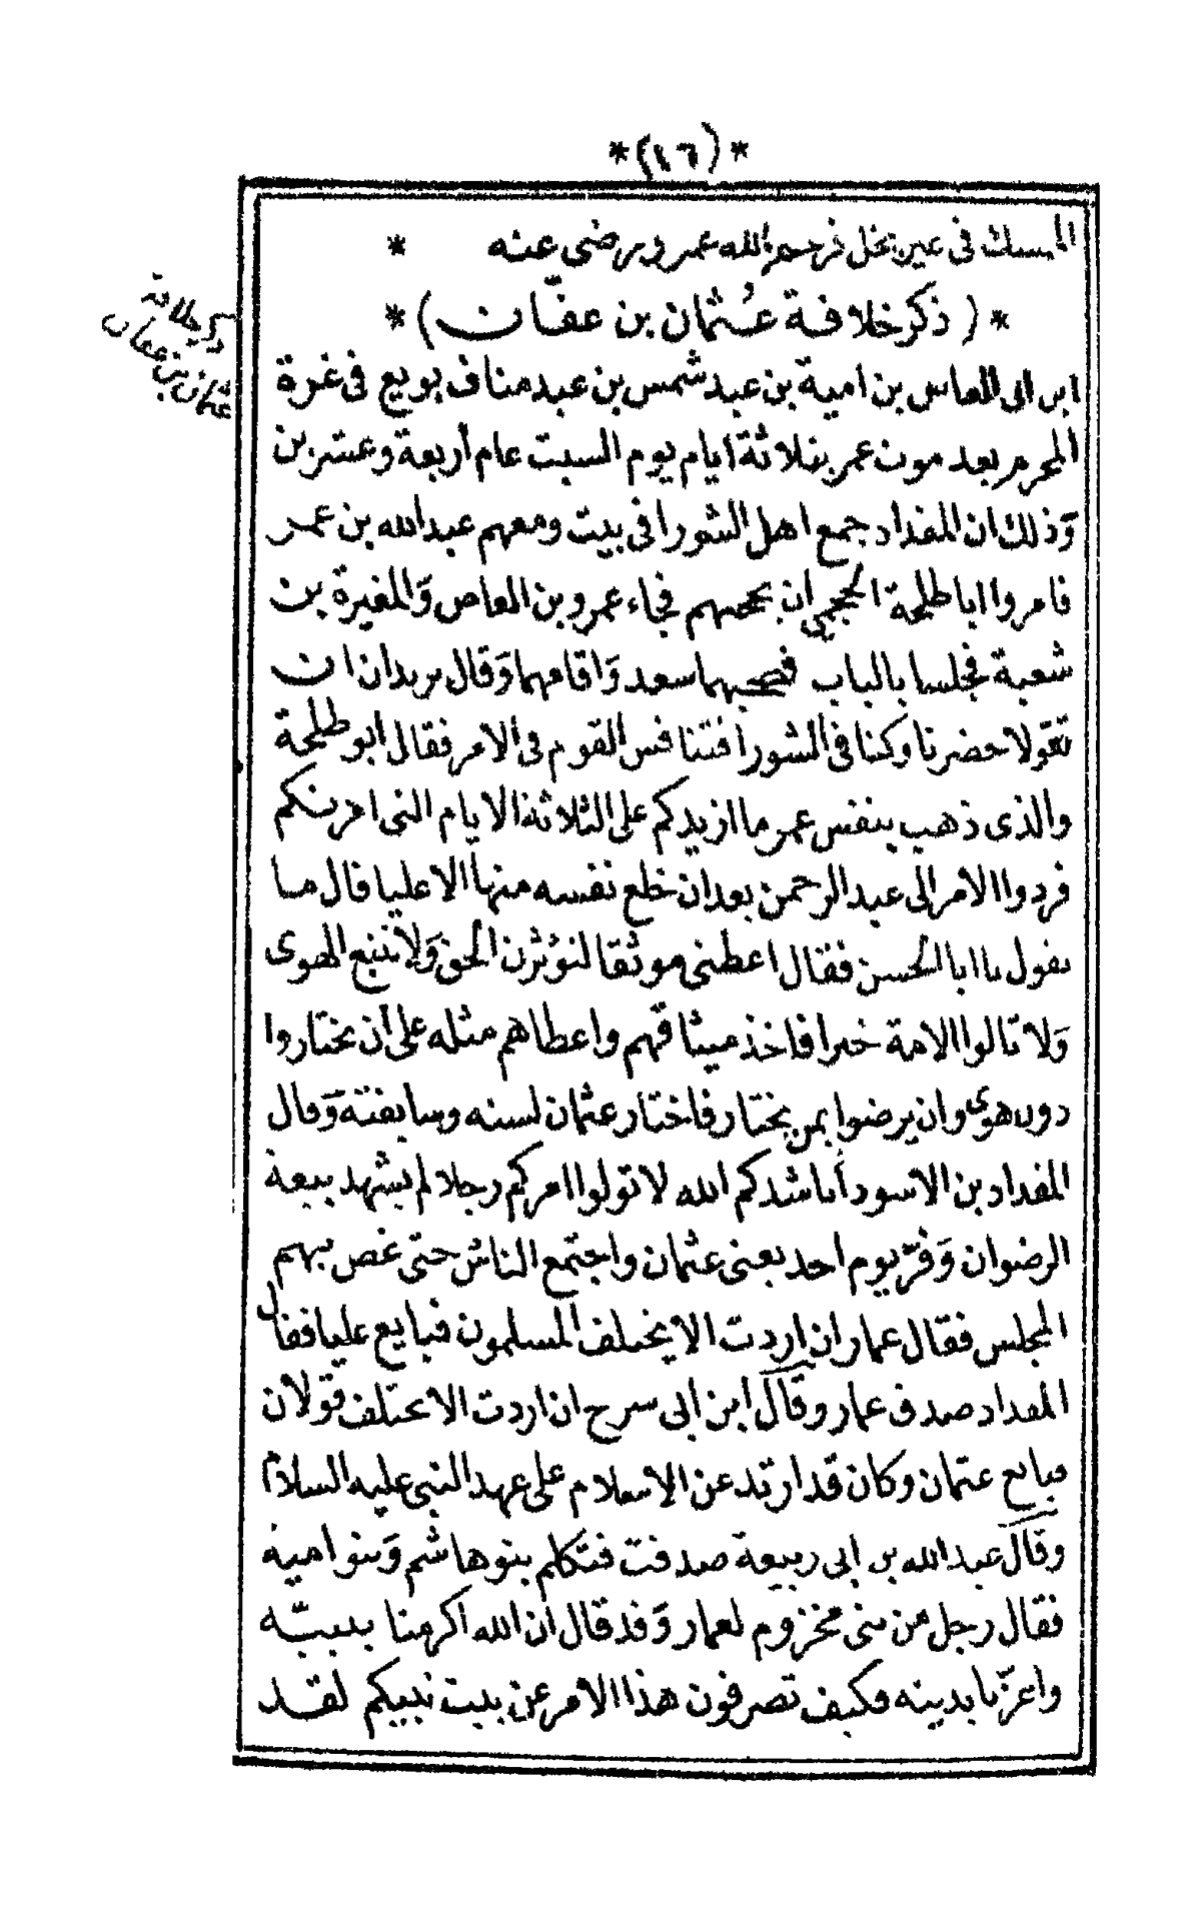 *(١٦)*
المسك فى عين بخل فرحم الله عمر ورضى عنه *
*( ذكر خلافة عُثمان بن عفّان )*
ذكر خلافة
عثمان بن عفان
ابن ابى العاص بن امية بن عبد شمس بن عبد مناف بويع فى غرة
المحرم بعد موت عمر بثلاثة ايام يوم السبت عام أربعة وعشرين
وَذلك ان المقداد جمع اهل الشورا فى بيت ومعهم عبد الله بن عمر
فامروا ابا طلحة الحجمي ان يحجبهم فجاء عمرو بن العاص وَالمغيرة بن
شعبة فجلسا بالباب فحصبهما سعد وَاقامهما وَقال يريدان ان
تقولا حضرنا وكنا فى الشورا فتنافس القوم فى الامر فقال ابو طلحة
والذى ذهب بنفس عمر ما ازيدكم على الثلاثة الايام التى امرتكم
فردوا الامر الى عبد الرحمن بعد ان خلع نفسه منها الا عليا قال ما
تقول يا ابا الحسن فقال اعطنى موثقا لتؤثرن الحق وَلا تتبع الهوى
وَلا تالوا الامة خيرا فاخذ ميثاقهم واعطاهم مثله على ان يختاروا
دون هوى وان يرضوا بمن يختار فاختار عثمان لسنه وسابقته وَقال
المقداد بن الاسود أناشدكم الله لا تولوا امركم رجلا لم يشهد بيعة
الرضوان وَفرّ يوم احد يعنى عثمان واجتمع الناس حتى غص بهم
المجلس فقال عمار ان اردت الا يختلف المسلمون فبايع عليا فقال
المقداد صدق عمار وقال ابن ابى سرح ان اردت الا تختلف قولان
فبايع عثمان وكان قد ارتد عن الاسلام على عهد النبى عليه السلام
وقال عبد الله بن ابى ربيعة صدقت فتكلم بنو هاشم وَبنو امية
فقال رجل من بنى مخزوم لعمار وَقد قال ان الله اكرمنا بنبيّه
واعزّنا بدينه فكيف تصرفون هذا الامر عن بيت نبيكم لقد